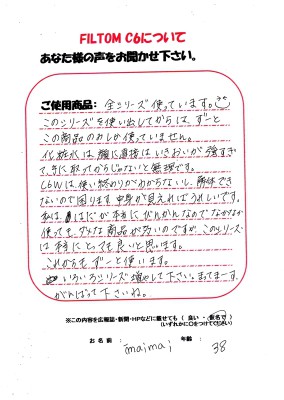 FILTOM C6について
あなた様の声をお聞かせ下さい。
ご使用商品: 全シリーズ使っています。
このシリーズを使い出してからは、ずーと
この商品のみしか使っていません。
化粧水は、顔に直接はいきおいが強すぎ
て、手に取ってからじゃないと無理です。
は使い終りがわからないし、解体でき
ないので困ります。中身が見えればうれしいです。
私は、はだが本当にびんかんなのでなかなか
使っても、ダメな商品が多いのですが、このシリーズ
は本当にとっても良いと思います。
これからもずーと使います。
いろいろシリーズ増やして下さい。まってまーす。
がんばって下さいね。
※この内容を広報誌・新聞・HPなどに載せても ( 良い ・ 仮名で )
(いずれかに〇をつけて下さい)
お名前: imaimai 年齢: 38